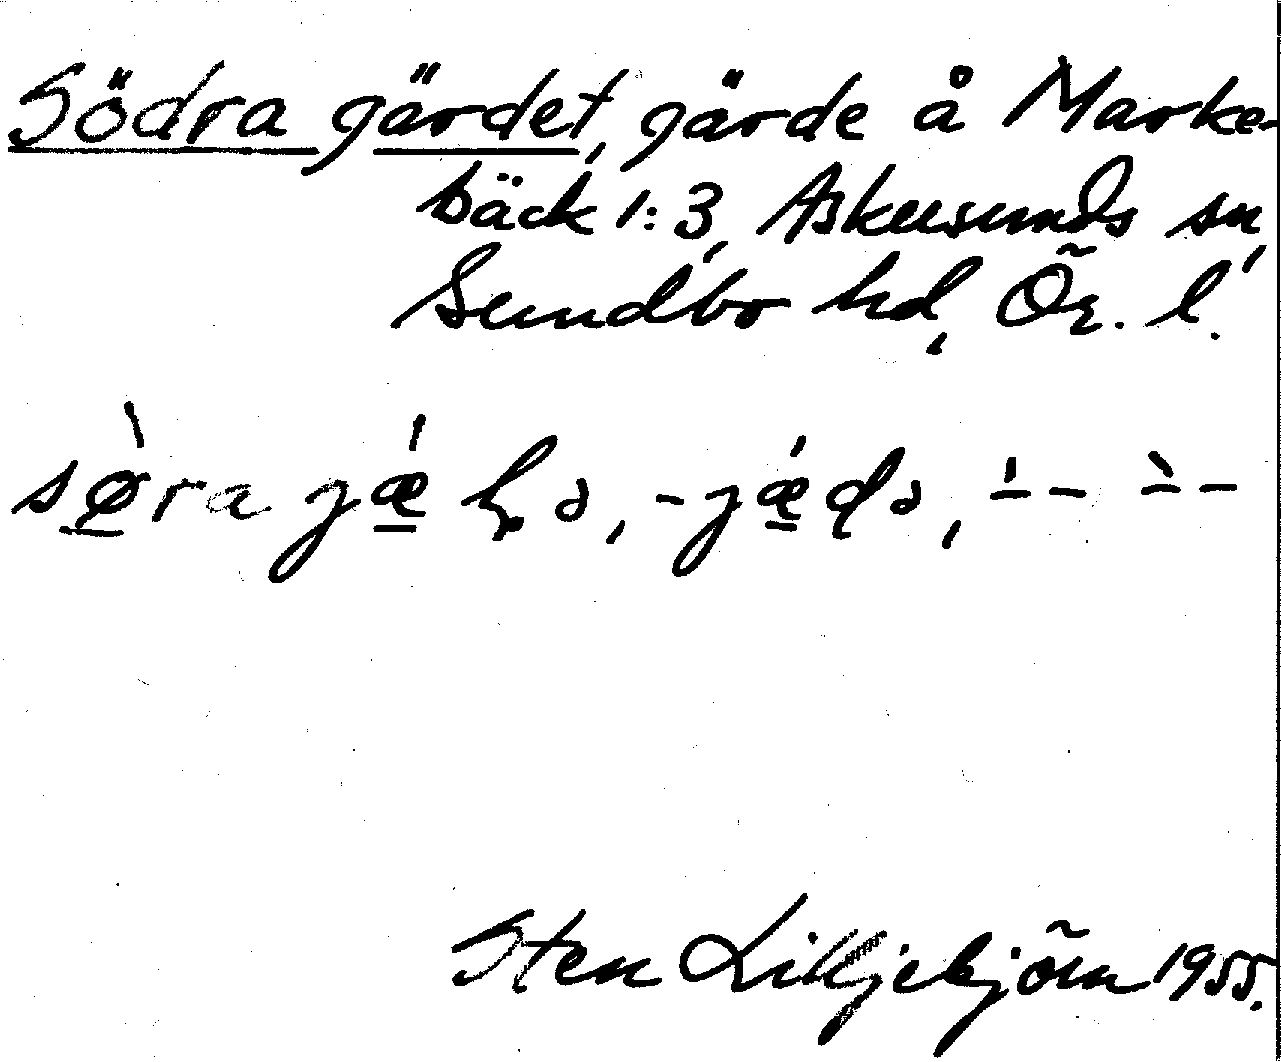 Södra gärdet, gärde å Marke-
bäck 1:3, Askersunds sn,
Sundbo hd, Ör. l.
sø̱̀ra jǽ̱ɖə, -jǽ̱ɖə, -́ -, -̀ -
Sten Liljebjörn 1955.